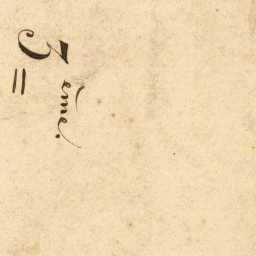 3 ème.